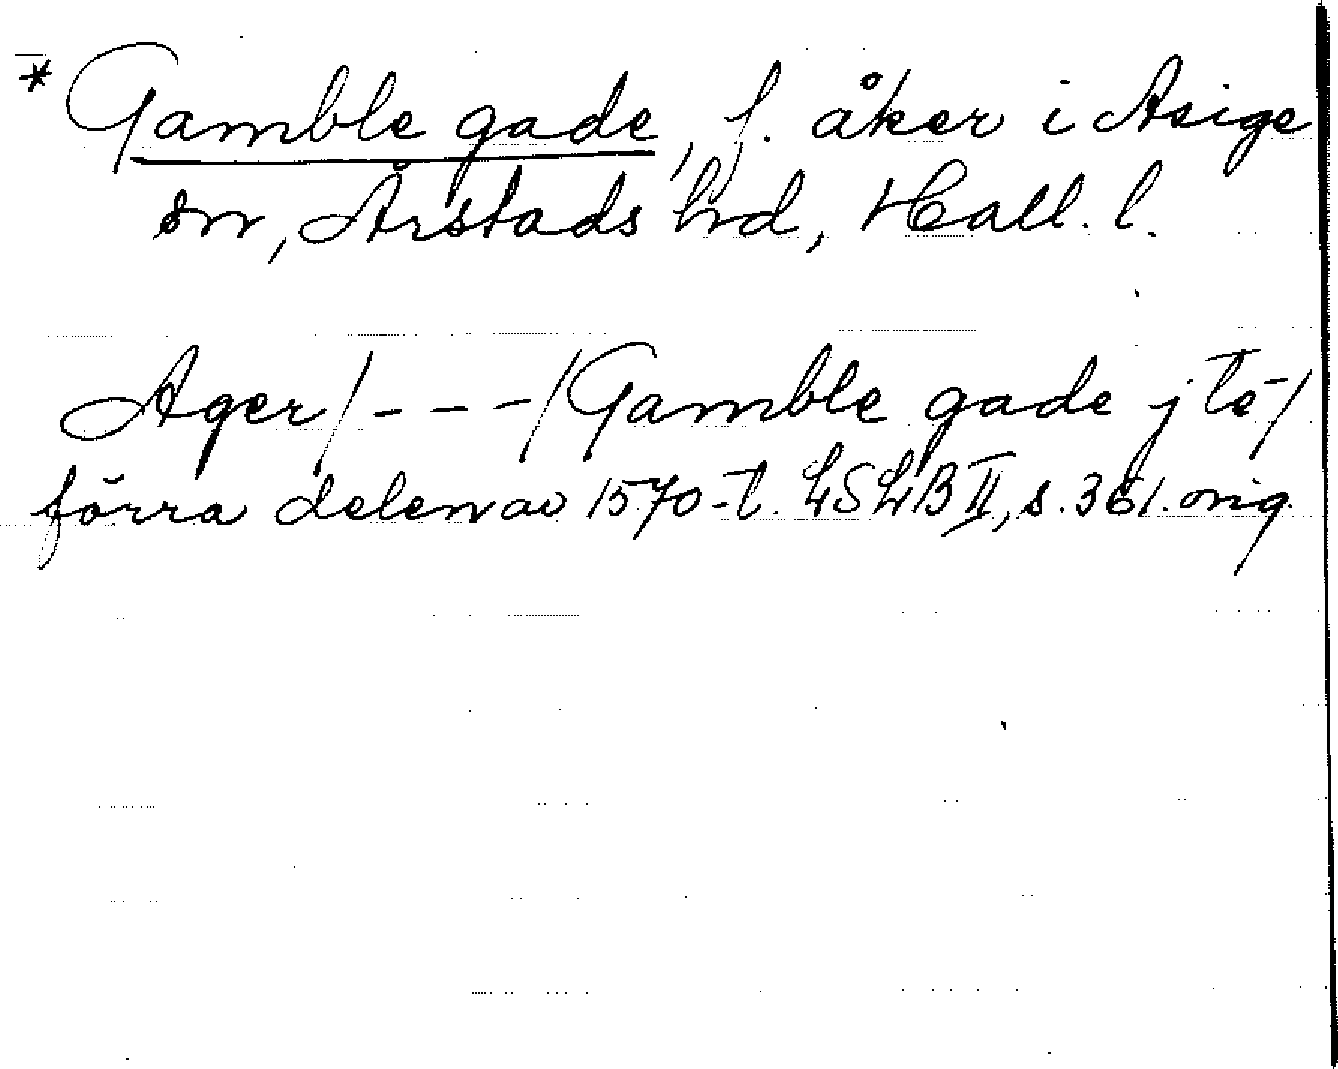 * Gamble gade, f. åker i Asige
sn, Årstads hd, Hall. l.
Ager/ - - - /Gamble gade j te-/
förra delen av 1570-t. LSLB II, s. 361. orig.